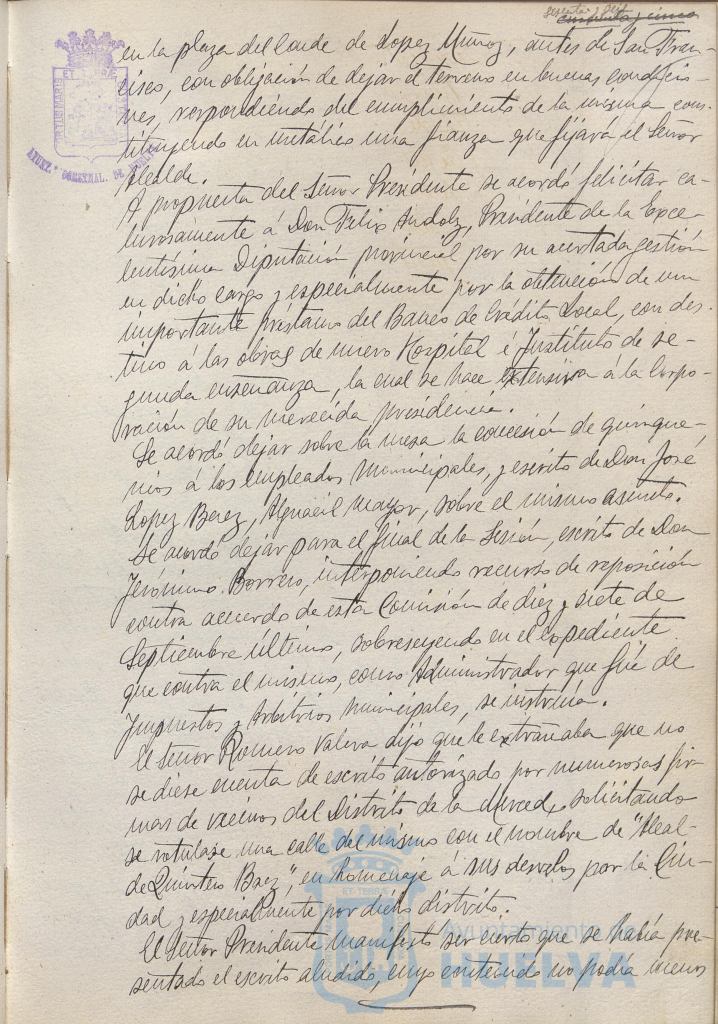 sesenta y seis
cincuenta y cinco
en la plaza del Conde de Lopez Muñoz, antes de San Fran-
cisco, con obligación de dejar el terreno en buenas condicio-
nes, respondiendo del cumplimiento de la misma cons-
tituyendo en metálico una fianza que fijará el Señor
Alcalde.
A propuesta del Señor Presidente se acordó felicitar ca-
lurosamente á Don Felix Andolz, Presidente de la Exce-
lentísima Diputación provincial por su acertada gestión
en dicho cargo y especialmente por la obtención de un
importante préstamo del Banco de Crédito Local, con des-
tino á las obras de nuevo Hospital é Instituto de se-
gunda enseñanza, la cual se hace extensiva á la Corpo-
ración de su merecida presidencia.
Se acordó dejar sobre la mesa la concesión de quinque-
nios á los empleados Municipales, y escrito de Don José
Lopez Perez, Alguacil mayor, sobre el mismo asunto.
Se acordó dejar para el final de la Sesión, escrito de Don
Jerónimo Borrero, interponiendo recurso de reposición
contra acuerdo de esta Comisión de diez y siete de
Septiembre último, sobreseyendo en el expediente
que contra el mismo, como Administrador que fué de
Impuestos y Arbitrios Municipales, se instruía.
El Señor Romero Valera dijo que le extrañaba que no
se diese cuenta de escrito autorizado por numerosas fir-
mas de vecinos del Distrito de la Merced, solicitando
se rotulase una calle del mismo con el nombre de "Alcal-
de Quintero Baez", en homenaje á sus desvelos por la Ciu-
dad y especialmente por dicho distrito.
El Señor Presidente manifestó ser cierto que se había pre-
sentado el escrito aludido, cuyo contenido no podía menos
AYUNT.º COMUNAL. DE HUELVA
Ayuntamiento de
HUELVA